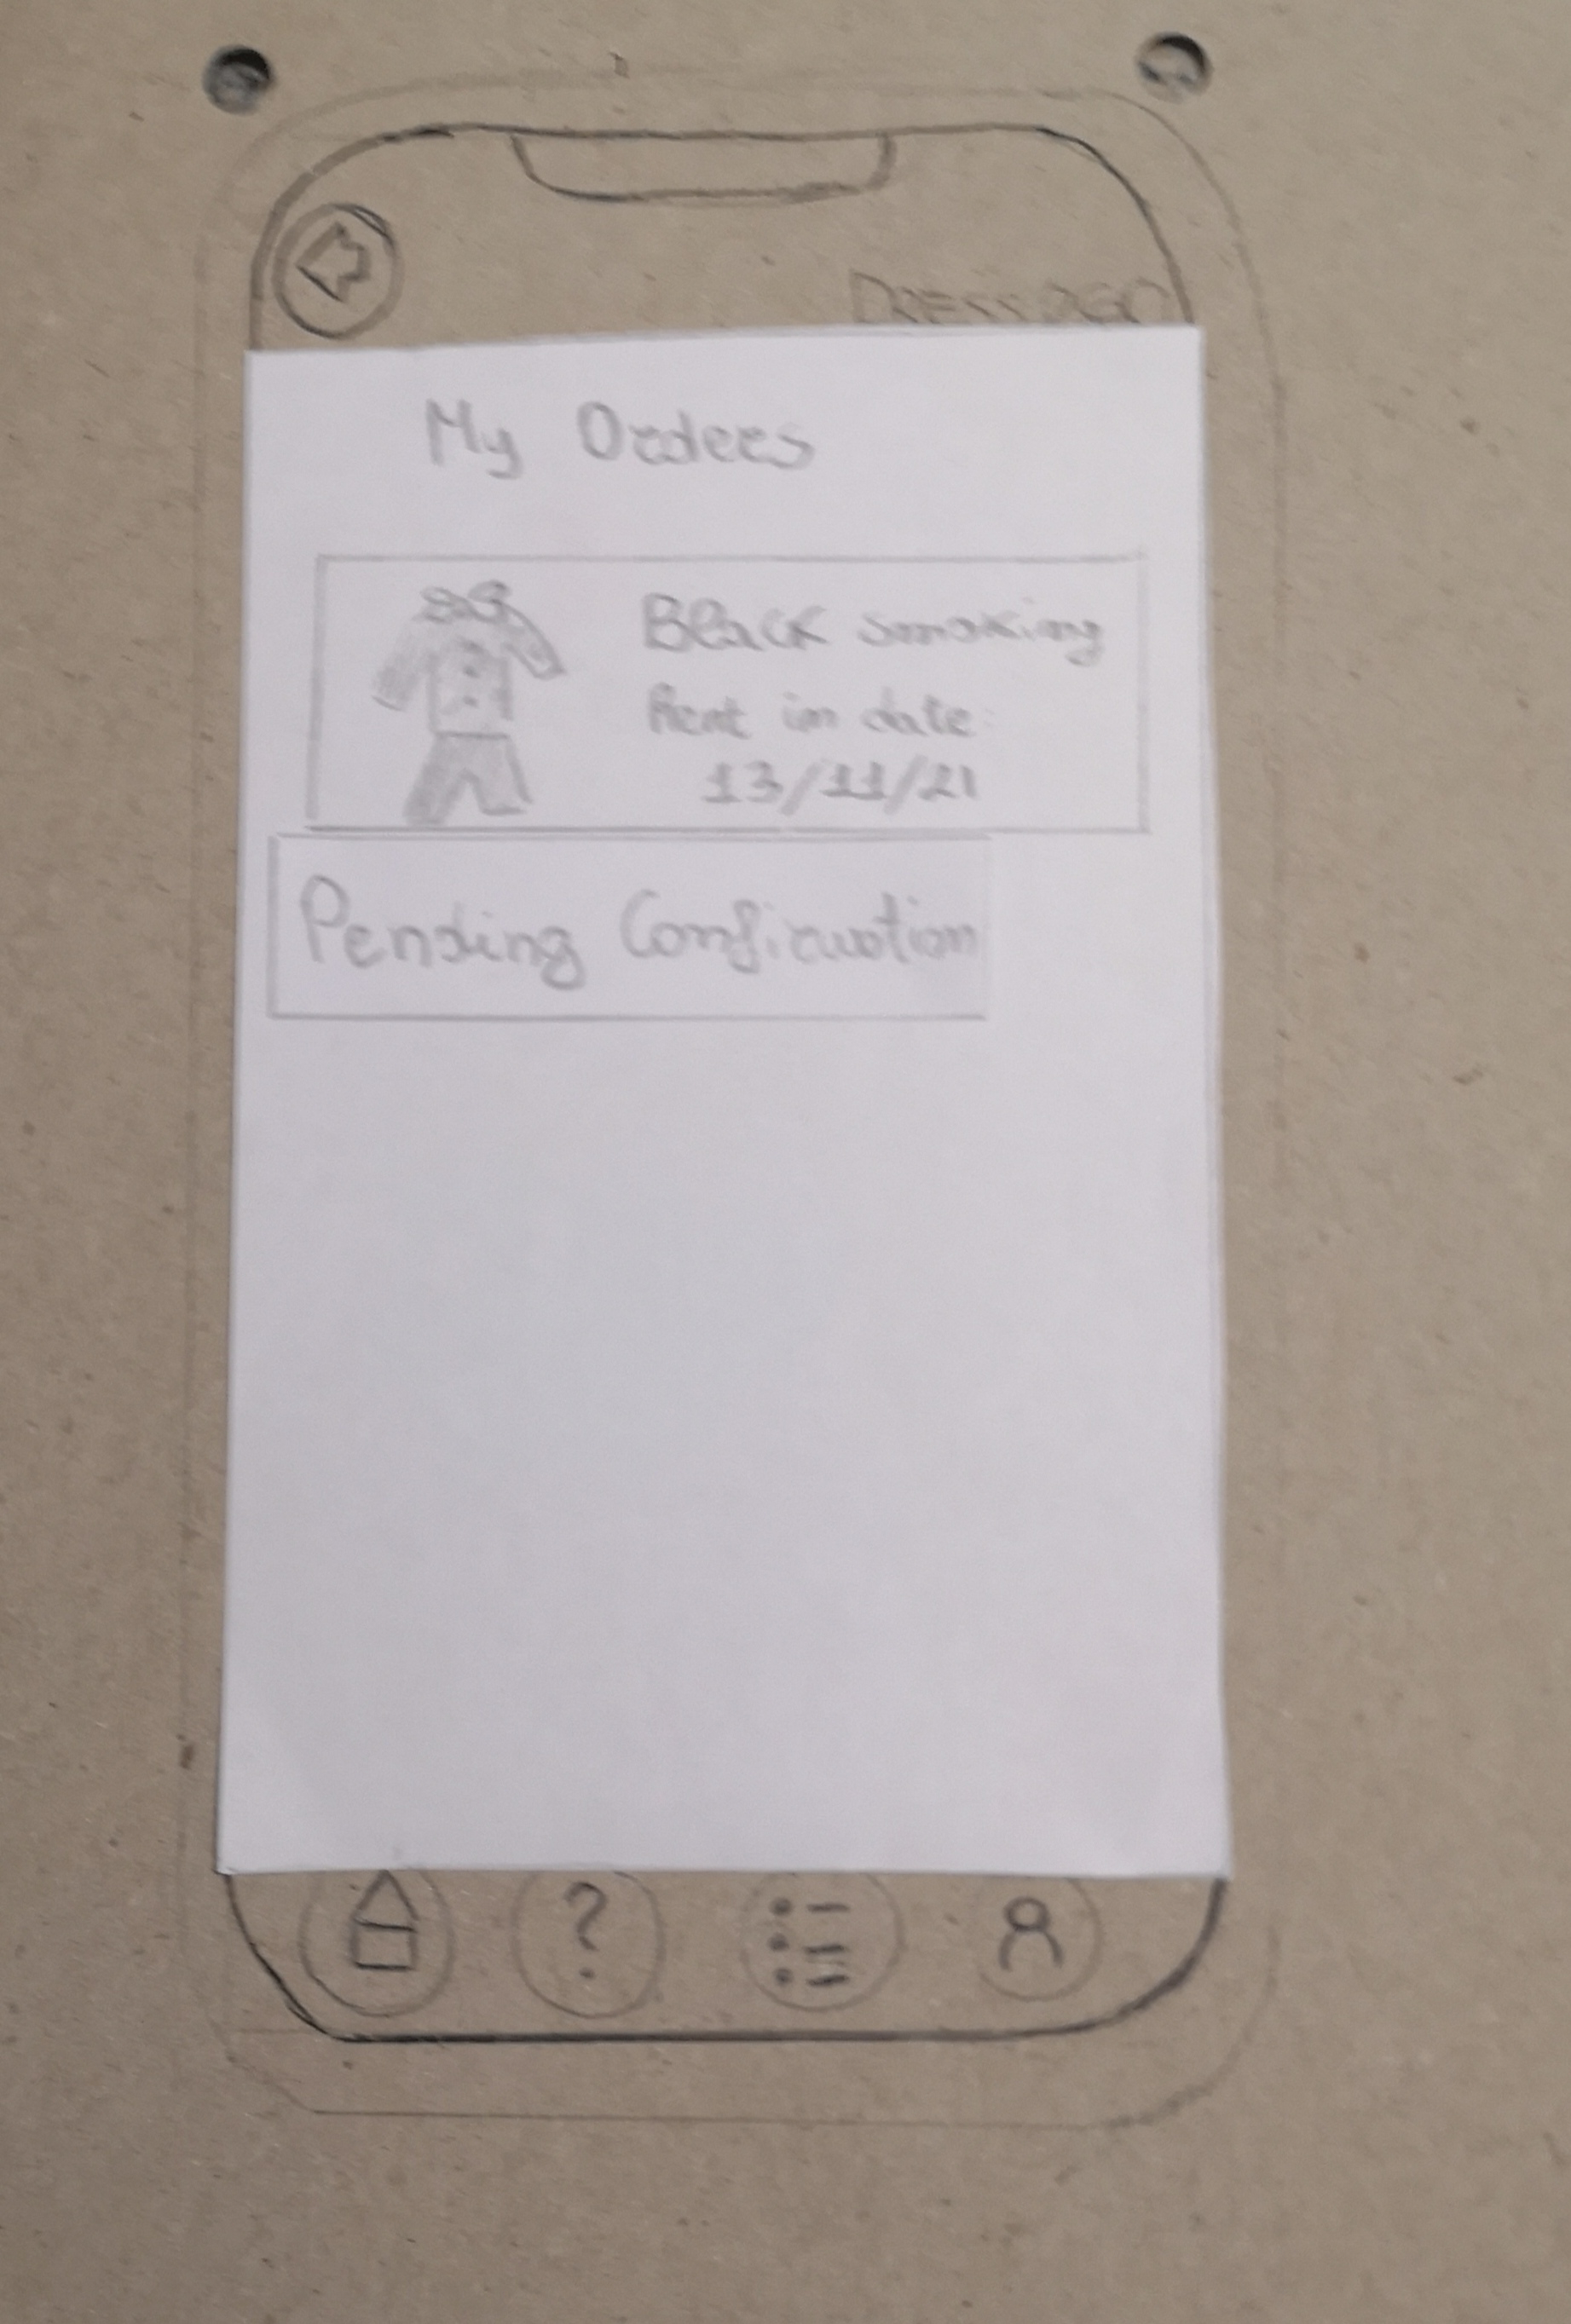 DRESS2GO
My Orders
Black smoking
Rent in date:
13/11/21
Pending Confirmation
?